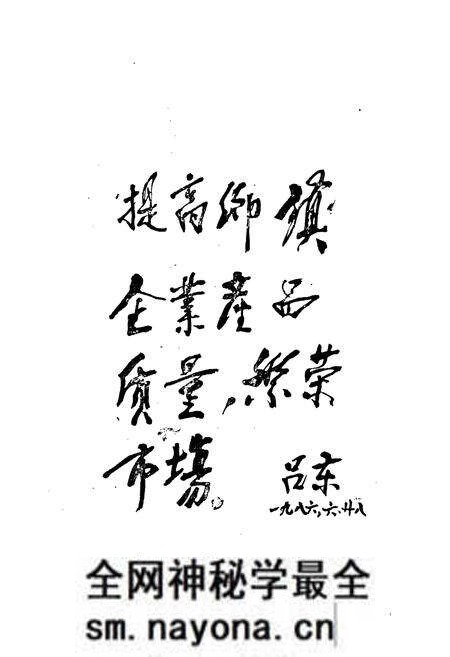 提高鄉鎮
企業產品
质量，繁荣
市場。
吕东
一九八六，六，廿八
全网神秘学最全
sm.nayona.cn